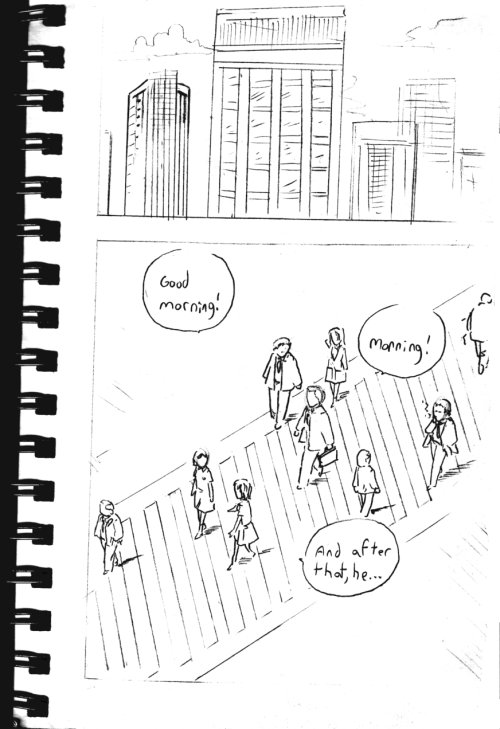 Good
morning!
Morning!
And after
that, he...